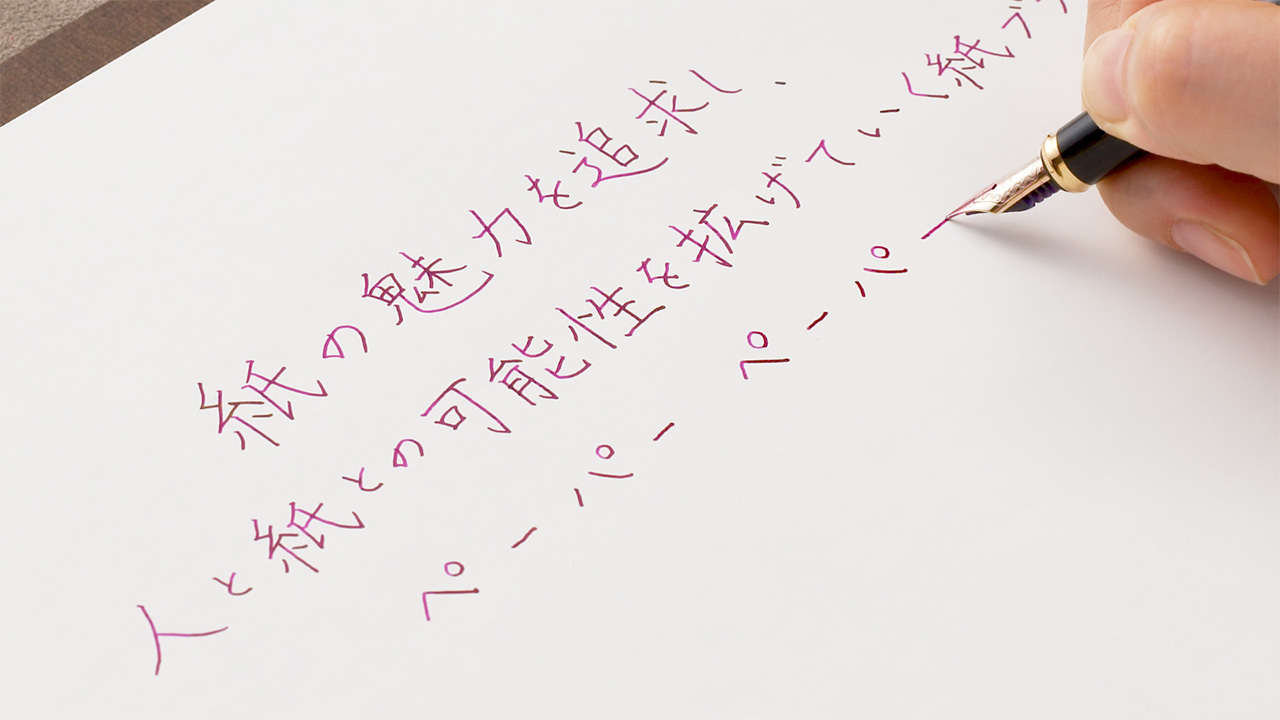 紙の魅力を追求し、
人と紙との可能性を拡げていく紙ブ
ペーパーペーパー